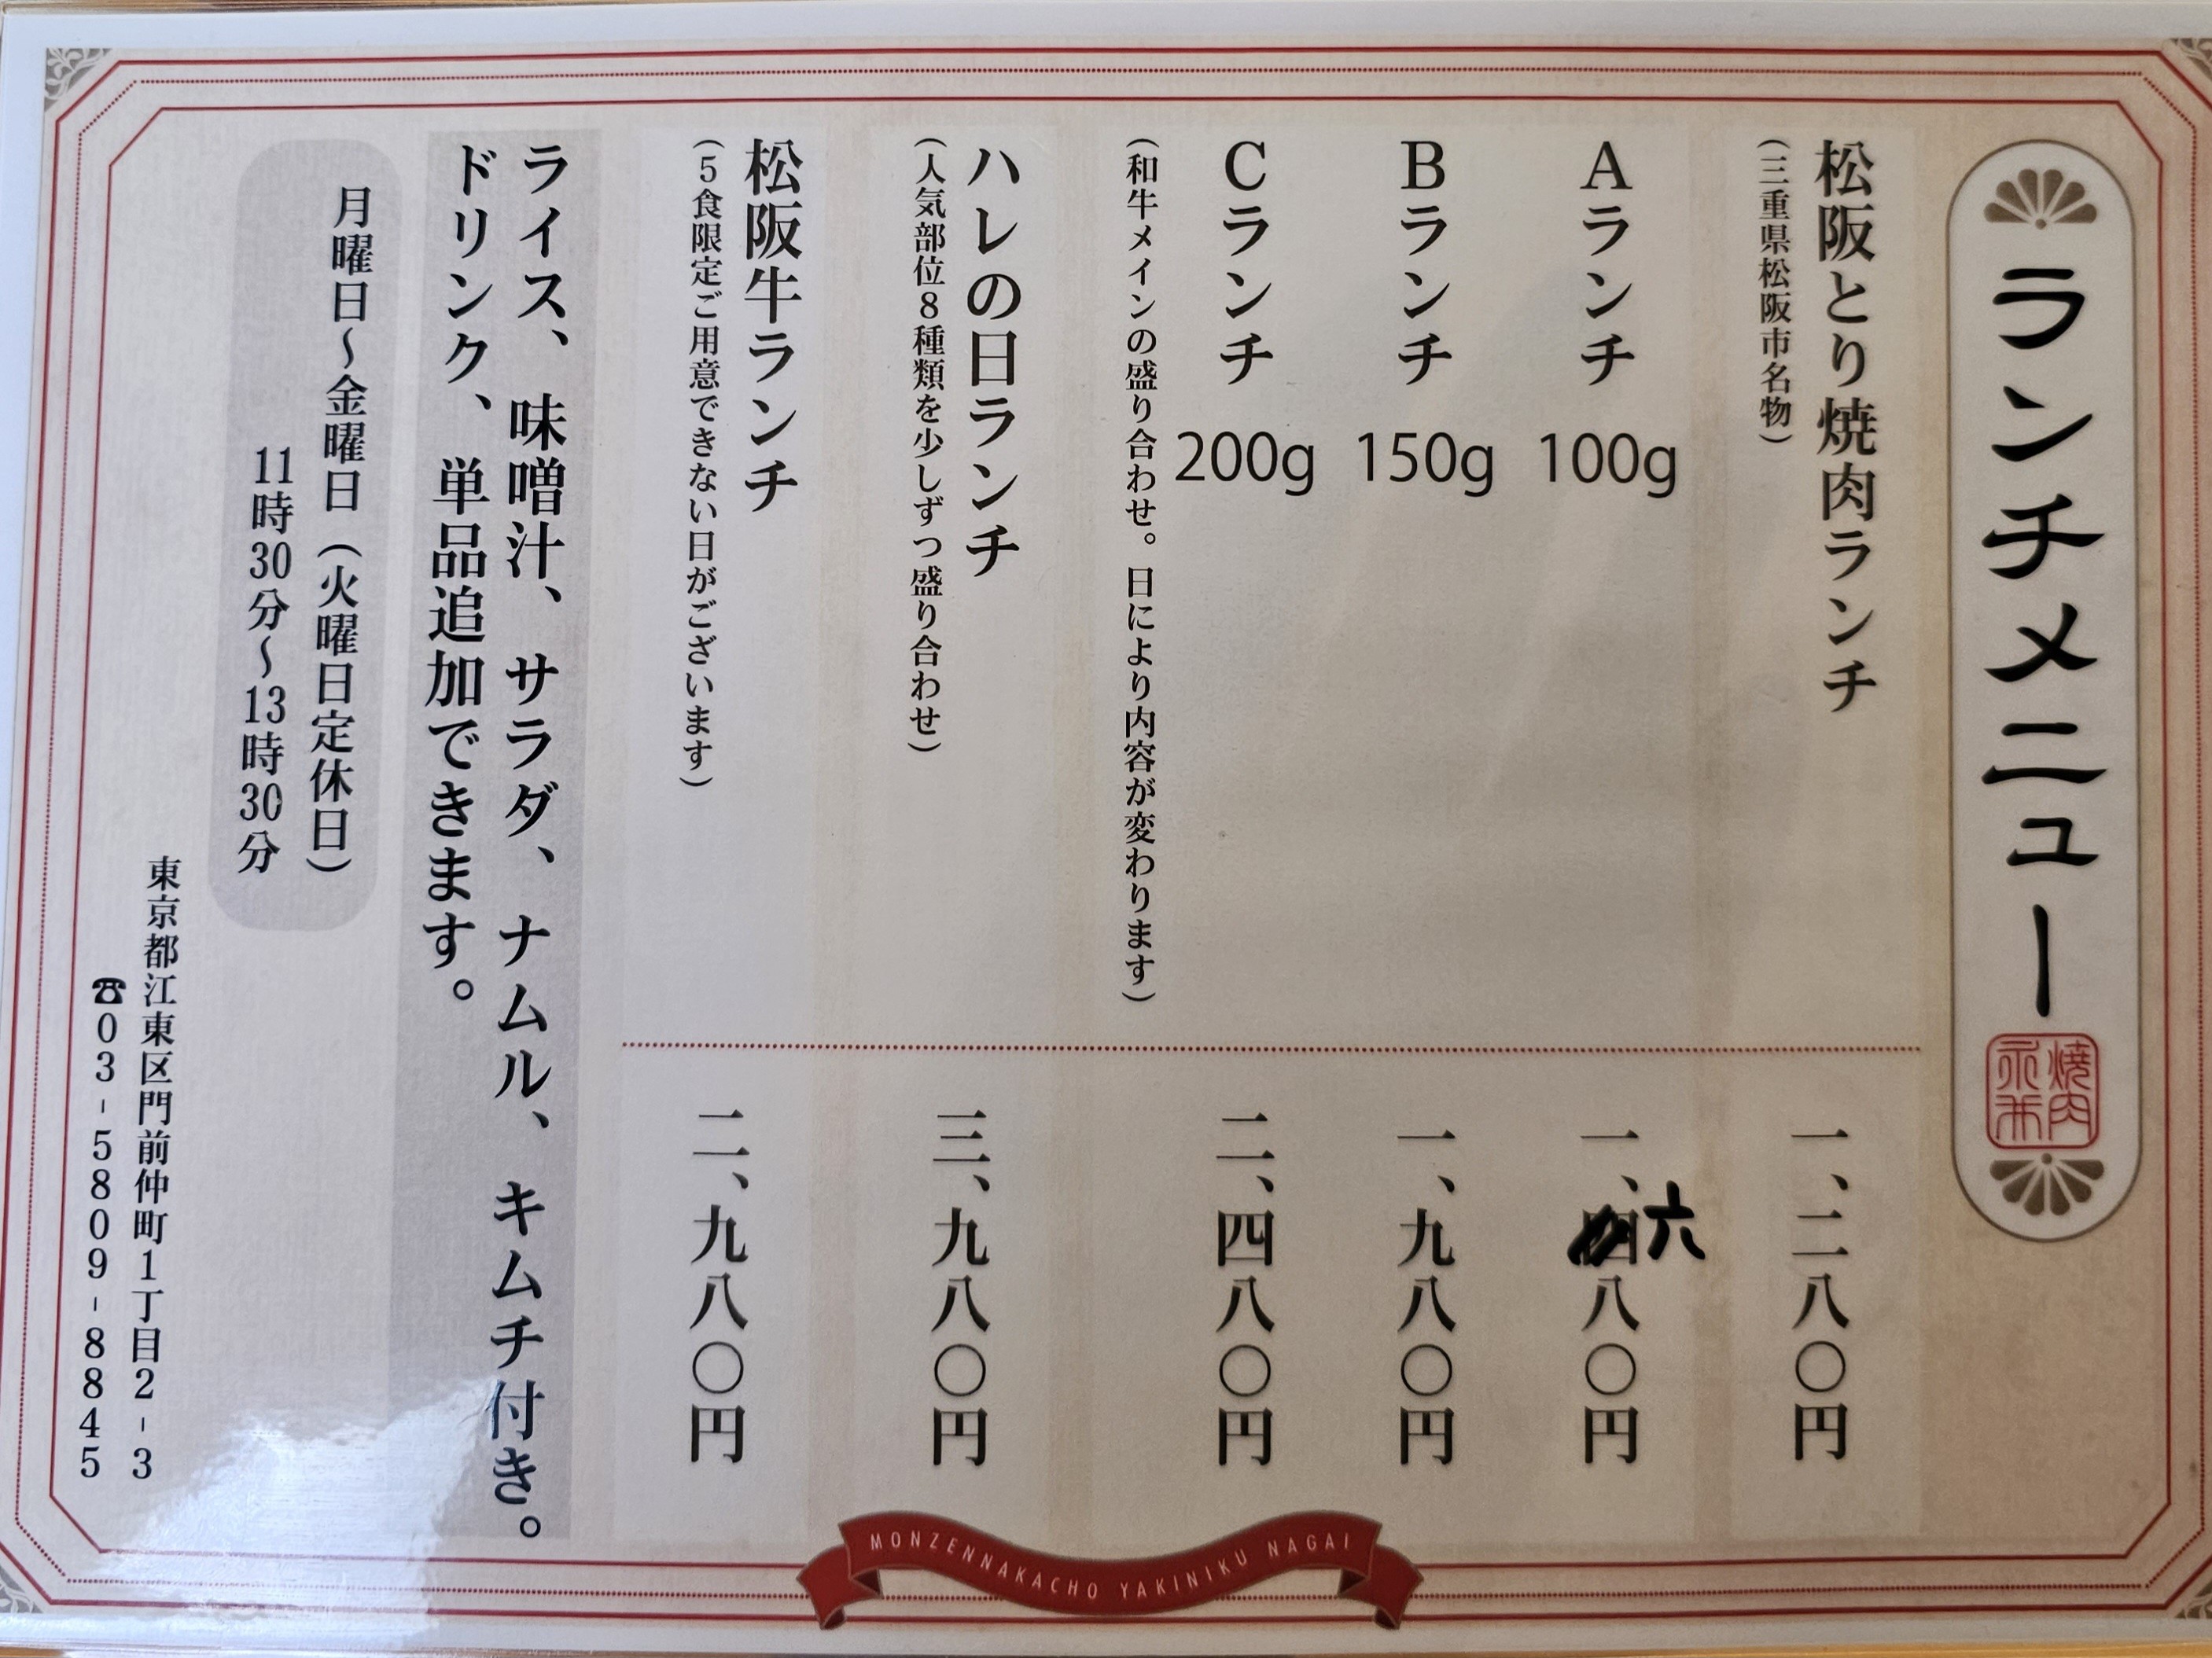 ランチメニュー
焼肉
永井
松阪とり焼肉ランチ
一、二八〇円
（三重県松阪市名物）
Aランチ 100g
一、六八〇円
Bランチ 150g
一、九八〇円
Cランチ 200g
二、四八〇円
（和牛メインの盛り合わせ。日により内容が変わります）
ハレの日ランチ
三、九八〇円
（人気部位8種類を少しずつ盛り合わせ）
松阪牛ランチ
二、九八〇円
（5食限定ご用意できない日がございます）
ライス、味噌汁、サラダ、ナムル、キムチ付き。
ドリンク、単品追加できます。
月曜日〜金曜日（火曜日定休日）
11時30分〜13時30分
東京都江東区門前仲町1丁目2-3
☎03-5809-8845
MONZENNAKACHO YAKINIKU NAGAI